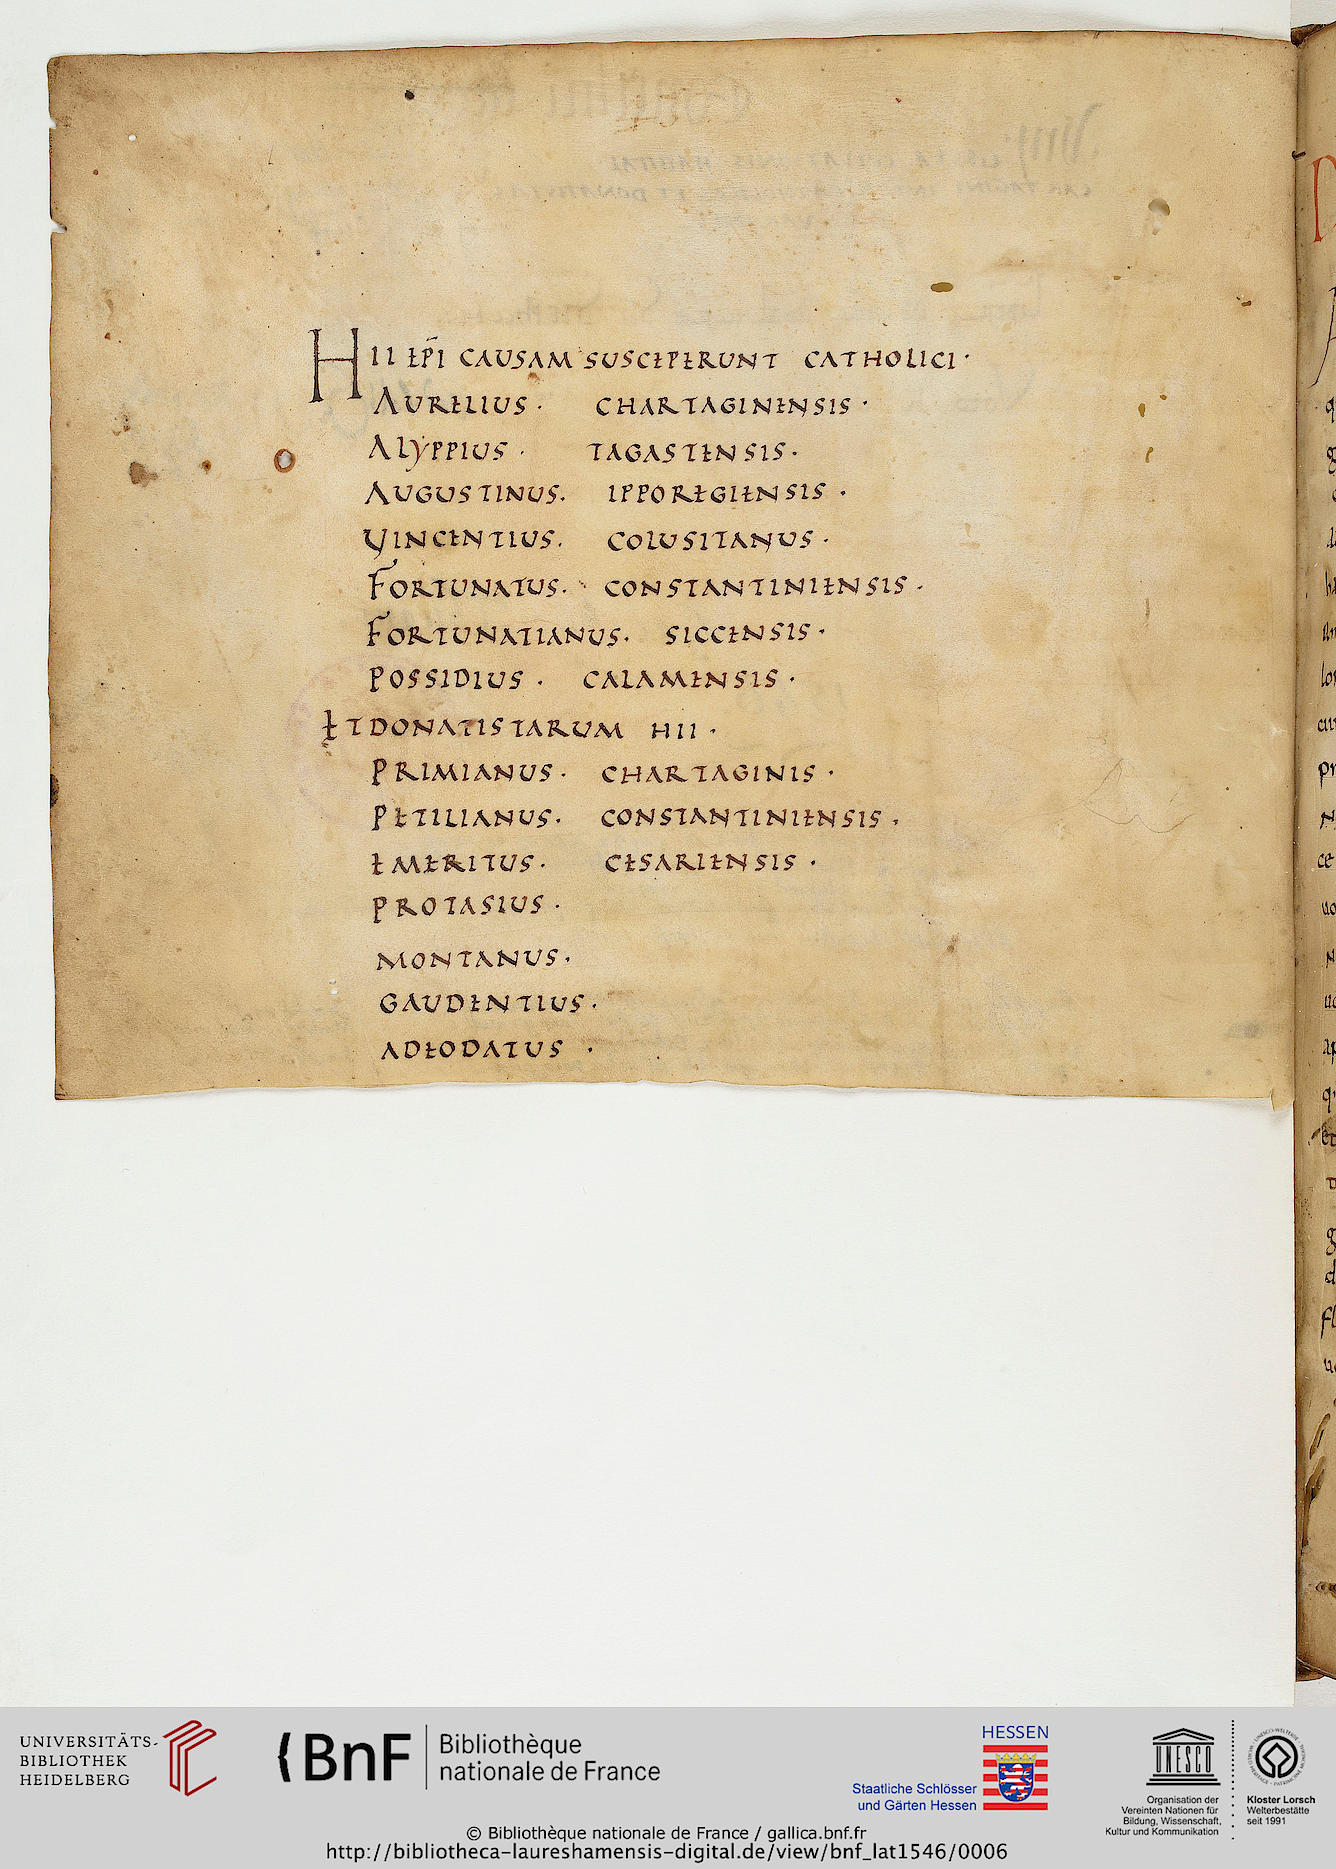 HII EPI CAUSAM SUSCEPERUNT CATHOLICI·
AURELIUS· CHARTAGINENSIS·
ALYPPIUS· TAGASTENSIS·
AUGUSTINUS. IPPOREGIENSIS·
VINCENTIUS. COLUSITANUS·
FORTUNATUS. CONSTANTINIENSIS·
FORTUNATIANUS. SICCENSIS·
POSSIDIUS. CALAMENSIS·
ET DONATISTARUM HII·
PRIMIANUS· CHARTAGINIS·
PETILIANUS. CONSTANTINIENSIS.
EMERITUS· CESARIENSIS·
PROTASIUS·
MONTANUS.
GAUDENTIUS·
ADEODATUS·
UNIVERSITÄTS-
BIBLIOTHEK
HEIDELBERG
BnF
Bibliothèque
nationale de France
HESSEN
Staatliche Schlösser
und Gärten Hessen
UNESCO
Organisation der
Vereinten Nationen für
Bildung, Wissenschaft,
Kultur und Kommunikation
Kloster Lorsch
Welterbestätte
seit 1991
© Bibliothèque nationale de France / gallica.bnf.fr
http://bibliotheca-laureshamensis-digital.de/view/bnf_lat1546/0006